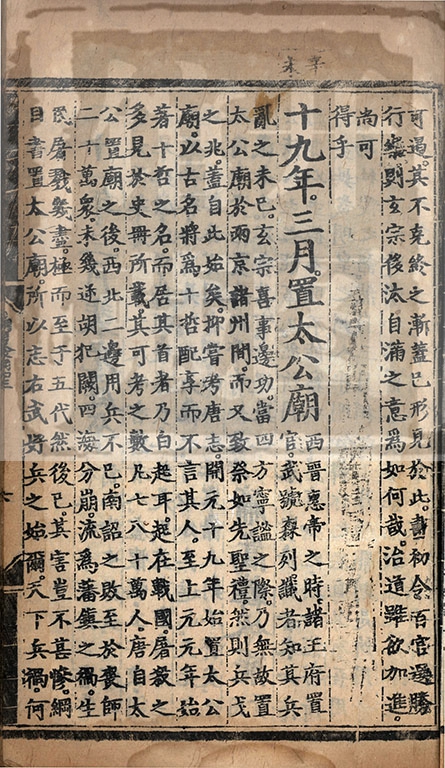 辛未
可遏。其不克終之漸蓋已形見於此。書初令百官選勝
行樂則玄宗侈汰自滿之意爲如何哉。治道雖欲加進。
尚可
得乎
十九年。三月。置太公廟
西晉惠帝之時。諸王府置
官。武號森列。識者知其兵
亂之未已。玄宗喜事邊功。當四方寧謐之際。乃無故置
太公廟於兩京諸州間。而又致祭如先聖禮。然則兵戈
之兆。蓋自此始矣。抑嘗考唐志開元十九年始置太公
廟。以古名將爲十哲配享而不言其人。至上元元年始
著十哲之名而居其首者乃白起耳。起在戰國屠殺之
多見於史冊所載。其可考之數凡七八十萬人。唐自太
公置廟之後。西北二邊用兵不已。南詔之敗至於喪師
二十萬衆。未幾逆胡犯闕。四海分崩。流爲藩鎭之禍。生
民屠戮幾盡。極而至于五代然後已。其害豈不甚慘。綱
目書置太公廟。所以志右武好兵之始爾。天下兵禍。何